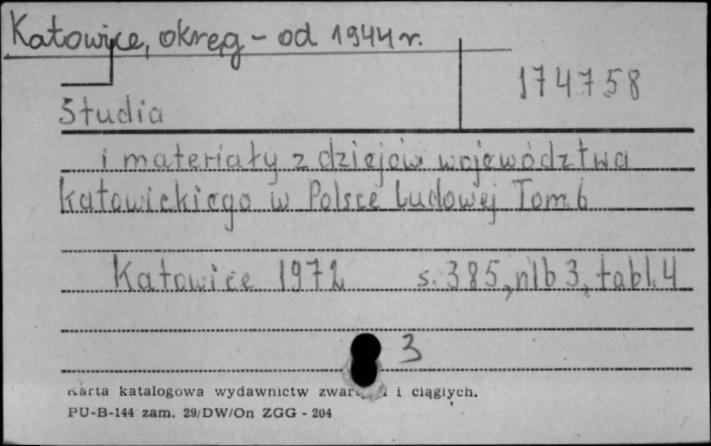 Katowice, okręg - od 1944 r.
174758
Studia
i materiały z dziejów województwa
Katowickiego w Polsce Ludowej Tom 6
Katowice 1972 s. 385, nlb 3, tabl. 4
3
Karta katalogowa wydawnictw i ciągłych.
PU-B-144 zam. 29/DW/On ZGG - 204